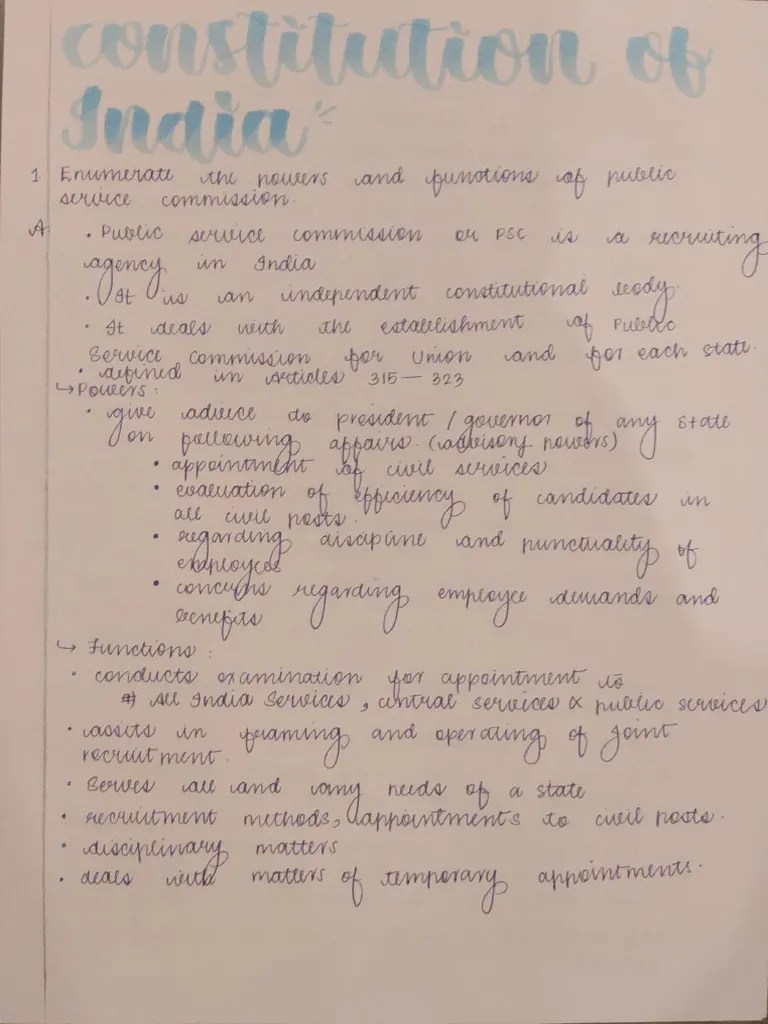 constitution of
India
1 Enumerate the powers and functions of public
service commission.
A • Public service commission or PSC is a recruiting
agency in India
• It is an independent constitutional body.
• It deals with the establishment of Public
Service Commission for Union and for each state.
• defined in Articles 315 — 323
↳ Powers :
• give advice to president / governor of any state
on following affairs. (advisory powers)
• appointment of civil services
• evaluation of efficiency of candidates in
all civil posts.
• regarding discipline and punctuality of
employees
• concerns regarding employee demands and
benefits
↳ Functions :
• conducts examination for appointment to
All India Services, central services & public services
• assits in framing and operating of joint
recruitment.
• Serves all and any needs of a state
• recruitment methods, appointments to civil posts.
• disciplinary matters
• deals with matters of temporary appointments.